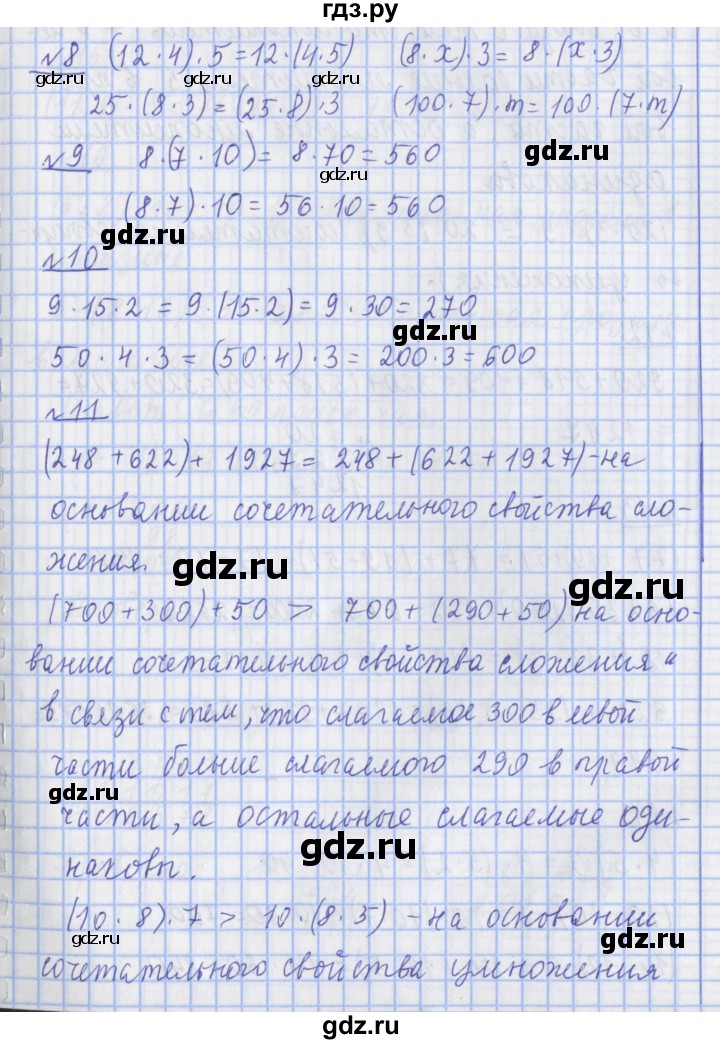 гдз.ру
№8 (12·4)·5=12·(4·5) (8·x)·3=8·(x·3)
gdz.ru gdz.ru gdz.ru
25·(8·3)=(25·8)·3 (100·7)·m=100·(7·m)
№9 8·(7·10)=8·70=560
gdz.ru gdz.ru
(8·7)·10=56·10=560
gdz.ru
№10
9·15·2=9·(15·2)=9·30=270
gdz.ru
50·4·3=(50·4)·3=200·3=600
№11
(248+622)+1927=248+(622+1927)-на
основании сочетательного свойства сло-
жения.
gdz.ru gdz.ru
(700+300)+50 > 700+(290+50) на осно-
вании сочетательного свойства сложения и
в связи с тем, что слагаемое 300 в левой
части больше слагаемого 290 в правой
gdz.ru gdz.ru
части, а остальные слагаемые оди-
gdz.ru
наковы.
(10·8)·7 > 10·(8·5) - на основании
gdz.ru gdz.ru
сочетательного свойства умножения
gdz.ru